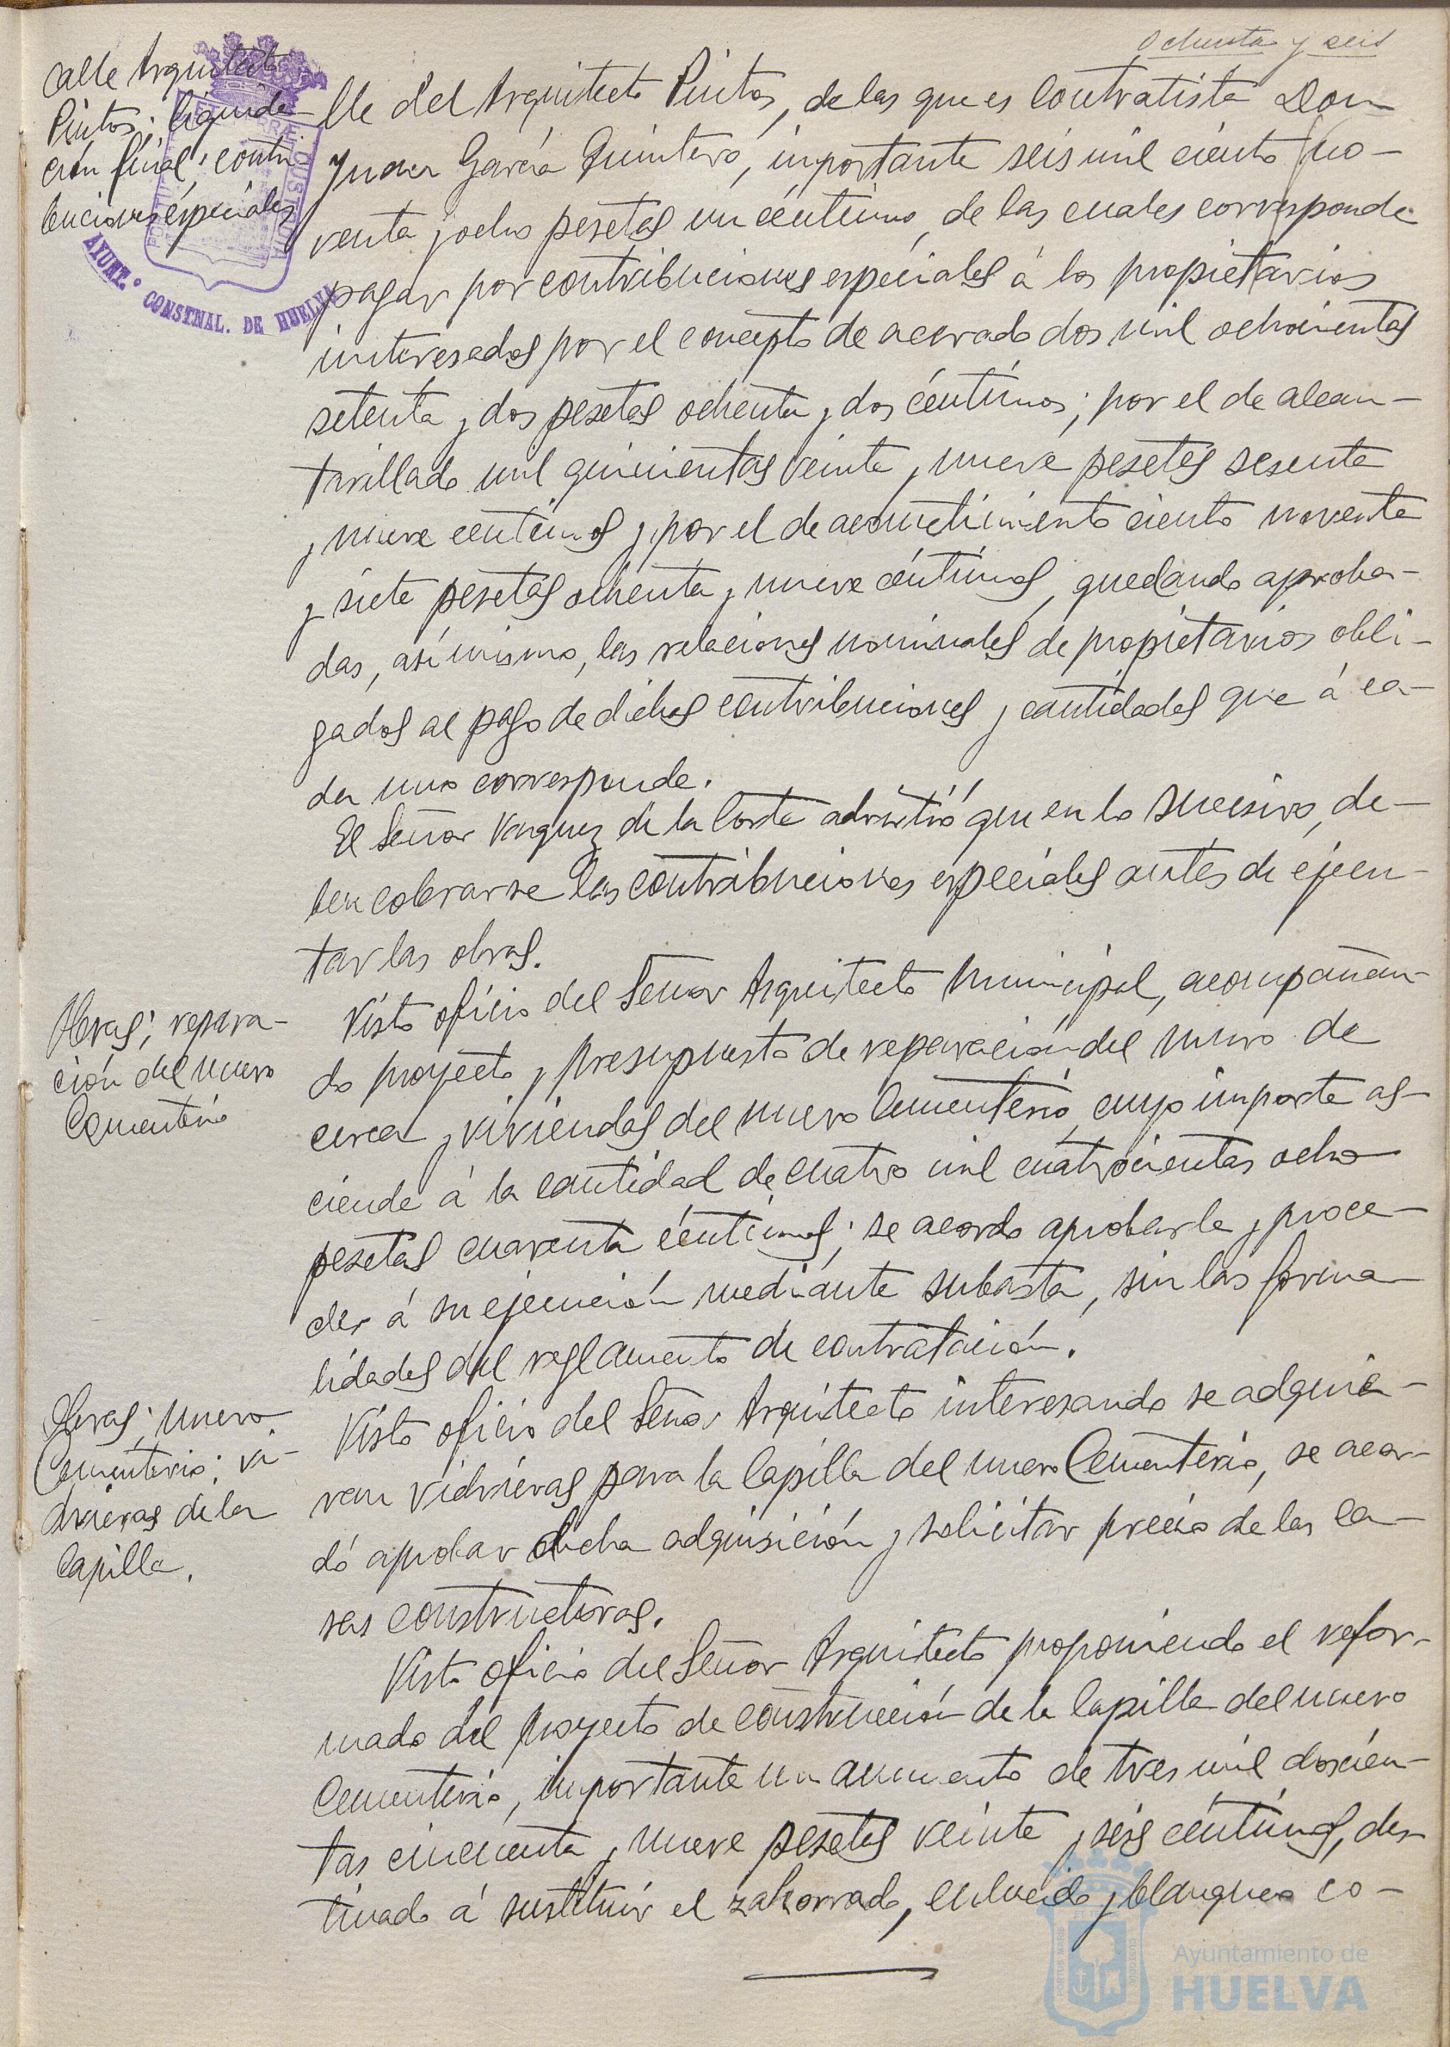 Ochenta y seis
Calle Arquitecto
Pintos; liquida-
ción final; contri-
buciones especiales
PORTUS MARIS ET TERRE CUSTODIA
AYUNT.º CONSTNAL. DE HUELVA
lle del Arquitecto Pintos, de las que es contratista Don
Juan García Quintero, importante seis mil ciento no-
venta y ocho pesetas un céntimo, de las cuales corresponde
pagar por contribuciones especiales á los propietarios
interesados por el concepto de acerado dos mil ochocientas
setenta y dos pesetas ochenta y dos céntimos; por el de alcan-
tarillado mil quinientas veinte y nueve pesetas sesenta
y nueve centimos y por el de acometimiento ciento noventa
y siete pesetas ochenta y nueve céntimos, quedando aproba-
das, asimismo, las relaciones nominales de propietarios obli-
gados al pago de dichas contribuciones y cantidades que á ca-
da uno corresponde.
El Señor Vazquez de la Corte advirtió que en lo sucesivo, de-
ben cobrarse las contribuciones especiales antes de ejecu-
tar las obras.
Obras; repara-
ción del nuevo
Cementerio
Visto oficio del Señor Arquitecto Municipal, acompañan-
do proyecto y presupuesto de reparación del muro de
cerca y viviendas del nuevo Cementerio, cuyo importe as-
ciende á la cantidad de cuatro mil cuatrocientas ocho
pesetas cuarenta céntimos; se acordo aprobarle y proce-
der á su ejecución mediante subasta, sin las forma-
lidades del reglamento de contratación.
Obras; nuevo
Cementerio; vi-
drieras de la
Capilla.
Visto oficio del Señor Arquitecto interesando se adquie-
ran vidrieras para la Capilla del nuevo Cementerio, se acor-
dó aprobar dicha adquisición y solicitar precio de las ca-
sas constructoras.
Visto oficio del Señor Arquitecto proponiendo el refor-
mado del proyecto de construcción de la Capilla del nuevo
Cementerio, importante un aumento de tres mil doscien-
tas cincuenta y nueve pesetas veinte y seis céntimos, des-
tinado á sustituir el zahorrado, enlucido y blanqueo co-
Ayuntamiento de
HUELVA